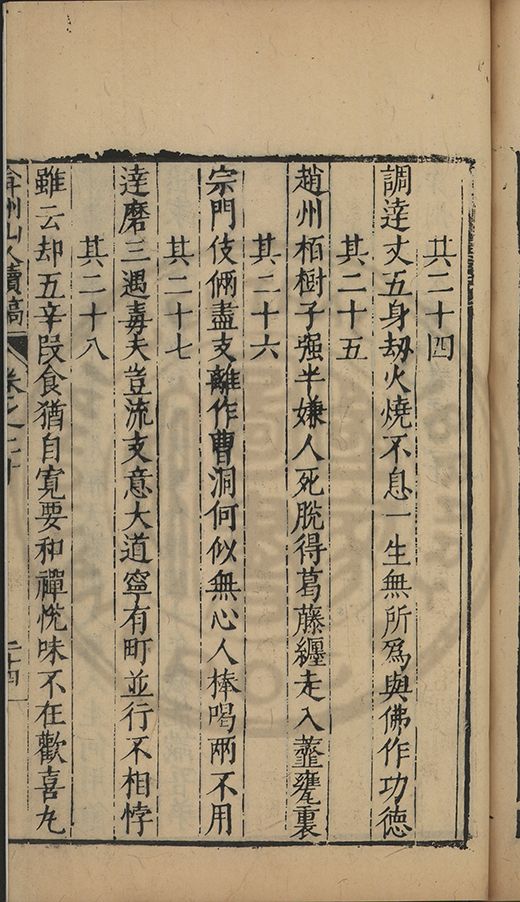 其二十四
調達丈五身劫火燒不息一生無所為與佛作功德
其二十五
趙州栢樹子强半嫌人死脫得葛藤纏走入虀甕裏
其二十六
宗門伎倆盡支離作曹洞何似無心人棒喝兩不用
其二十七
達磨三遇毒夫豈流支意大道寧有町並行不相悖
其二十八
雖云却五辛段食猶自寬要和禪悅味不在歡喜丸
弇州山人續稿
卷之二十
二十四